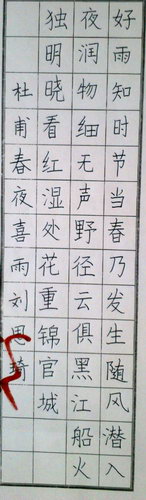 好雨知时节当春乃发生随风潜入
夜润物细无声野径云俱黑江船火
独明晓看红湿处花重锦官城
杜甫春夜喜雨刘